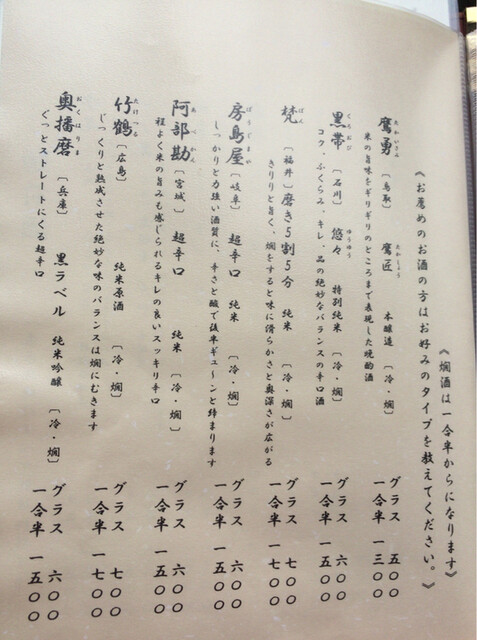 《燗酒は一合半からになります》
《お薦めのお酒の方はお好みのタイプを教えてください。》
鷹勇 〔鳥取〕 鷹匠 本醸造 〔冷・燗〕 グラス 五〇〇
たかいさみ たかしょう
米の旨味をギリギリのところまで表現した晩酌酒 一合半 一三〇〇
黒帯 〔石川〕 悠々 特別純米 〔冷・燗〕 グラス 六〇〇
くろおび ゆうゆう
コク、ふくらみ、キレ、品の絶妙なバランスの辛口酒 一合半 一五〇〇
梵 〔福井〕 磨き5割5分 純米 〔冷・燗〕 グラス 七〇〇
ぼん
きりりと旨く、燗をすると味に滑らかさと奥深さが広がる 一合半 一七〇〇
房島屋 〔岐阜〕 超辛口 純米 〔冷・燗〕 グラス 六〇〇
ぼうじまや
しっかりと力強い酒質に、辛さと酸で後半ギューンと締まります 一合半 一五〇〇
阿部勘 〔宮城〕 超辛口 純米 〔冷・燗〕 グラス 六〇〇
あべかん
程よく米の旨みも感じられるキレの良いスッキリ辛口 一合半 一五〇〇
竹鶴 〔広島〕 純米原酒 〔冷・燗〕 グラス 七〇〇
たけつる
じっくりと熟成させた絶妙な味のバランスは燗にむきます 一合半 一七〇〇
奥播磨 〔兵庫〕 黒ラベル 純米吟醸 〔冷・燗〕 グラス 六〇〇
おくはりま
ぐっとストレートにくる超辛口 一合半 一五〇〇